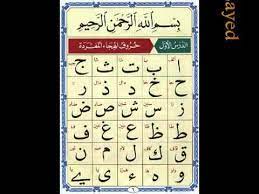 بِسْمِ اللهِ الرَّحْمٰنِ الرَّحِيْمِ
الدَّرْسُ الْأَوَّلُ حُرُوْفُ الْهِجَاءِ الْمُفْرَدَةِ
ا ب ت ث ج
ح خ د ذ ر
ز س ش ص ض
ط ظ ع غ ف
ق ك ل م ن
و ه ء ي ے
ayed